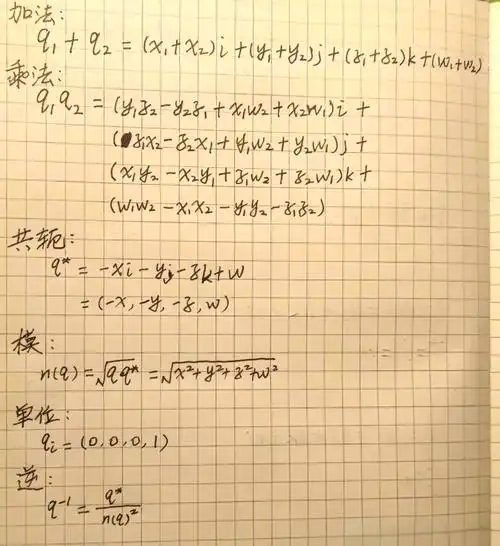 加法:
q₁ + q₂ = (x₁+x₂)i + (y₁+y₂)j + (z₁+z₂)k + (w₁+w₂)
乘法:
q₁q₂ = (y₁z₂ - y₂z₁ + x₁w₂ + x₂w₁)i +
(z₁x₂ - z₂x₁ + y₁w₂ + y₂w₁)j +
(x₁y₂ - x₂y₁ + z₁w₂ + z₂w₁)k +
(w₁w₂ - x₁x₂ - y₁y₂ - z₁z₂)
共轭:
q* = -xi - yj - zk + w
= (-x, -y, -z, w)
模:
n(q) = √(qq*) = √(x²+y²+z²+w²)
单位:
qᵢ = (0, 0, 0, 1)
逆:
q⁻¹ = q*/n(q)²